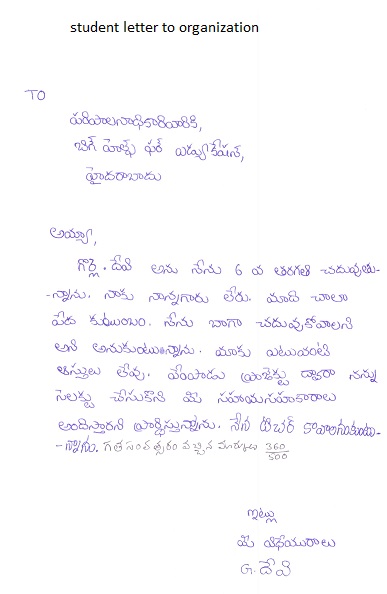 student letter to organization
TO
పరిపాలనాధికారివారికి,
బిగ్ హెల్ప్ ఫర్ ఎడ్యుకేషన్,
హైదరాబాదు
అయ్యా,
గొర్లె. దేవి అను నేను 6 వ తరగతి చదువుతు-
-న్నాను. నాకు నాన్నగారు లేరు. మాది చాలా
పేద కుటుంబం. నేను బాగా చదువుకోవాలని
అని అనుకుంటున్నాను. మాకు ఎటువంటి
ఆస్తులు లేవు. ప్రాజెక్టు ద్వారా నన్ను
సెలక్టు చేసుకొని మీ సహాయసహకారాలు
అందిస్తారని ప్రార్థిస్తున్నాను. నేను టీచర్ కావాలనుకుంటు-
-న్నాను. గత సంవత్సరం వచ్చిన మార్కులు 360/500
ఇట్లు
మీ విధేయురాలు
G. దేవి